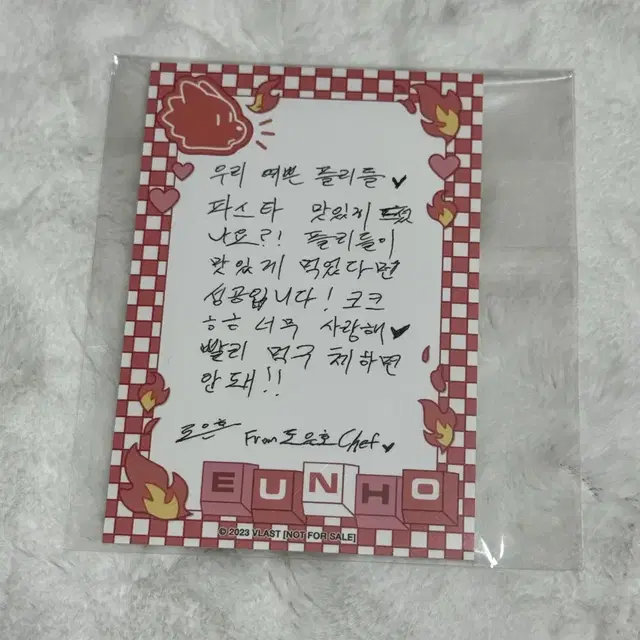 우리 예쁜 플리들 ♥
파스타 맛있게
나요?! 플리들이
맛있게 먹었다면
성공입니다! 코크
ㅎㅎ 너무 사랑해 ♥
빨리 먹구 체하면
안돼!!
From 도은호 Chef ♥
EUNHO
© 2023 VLAST [NOT FOR SALE]